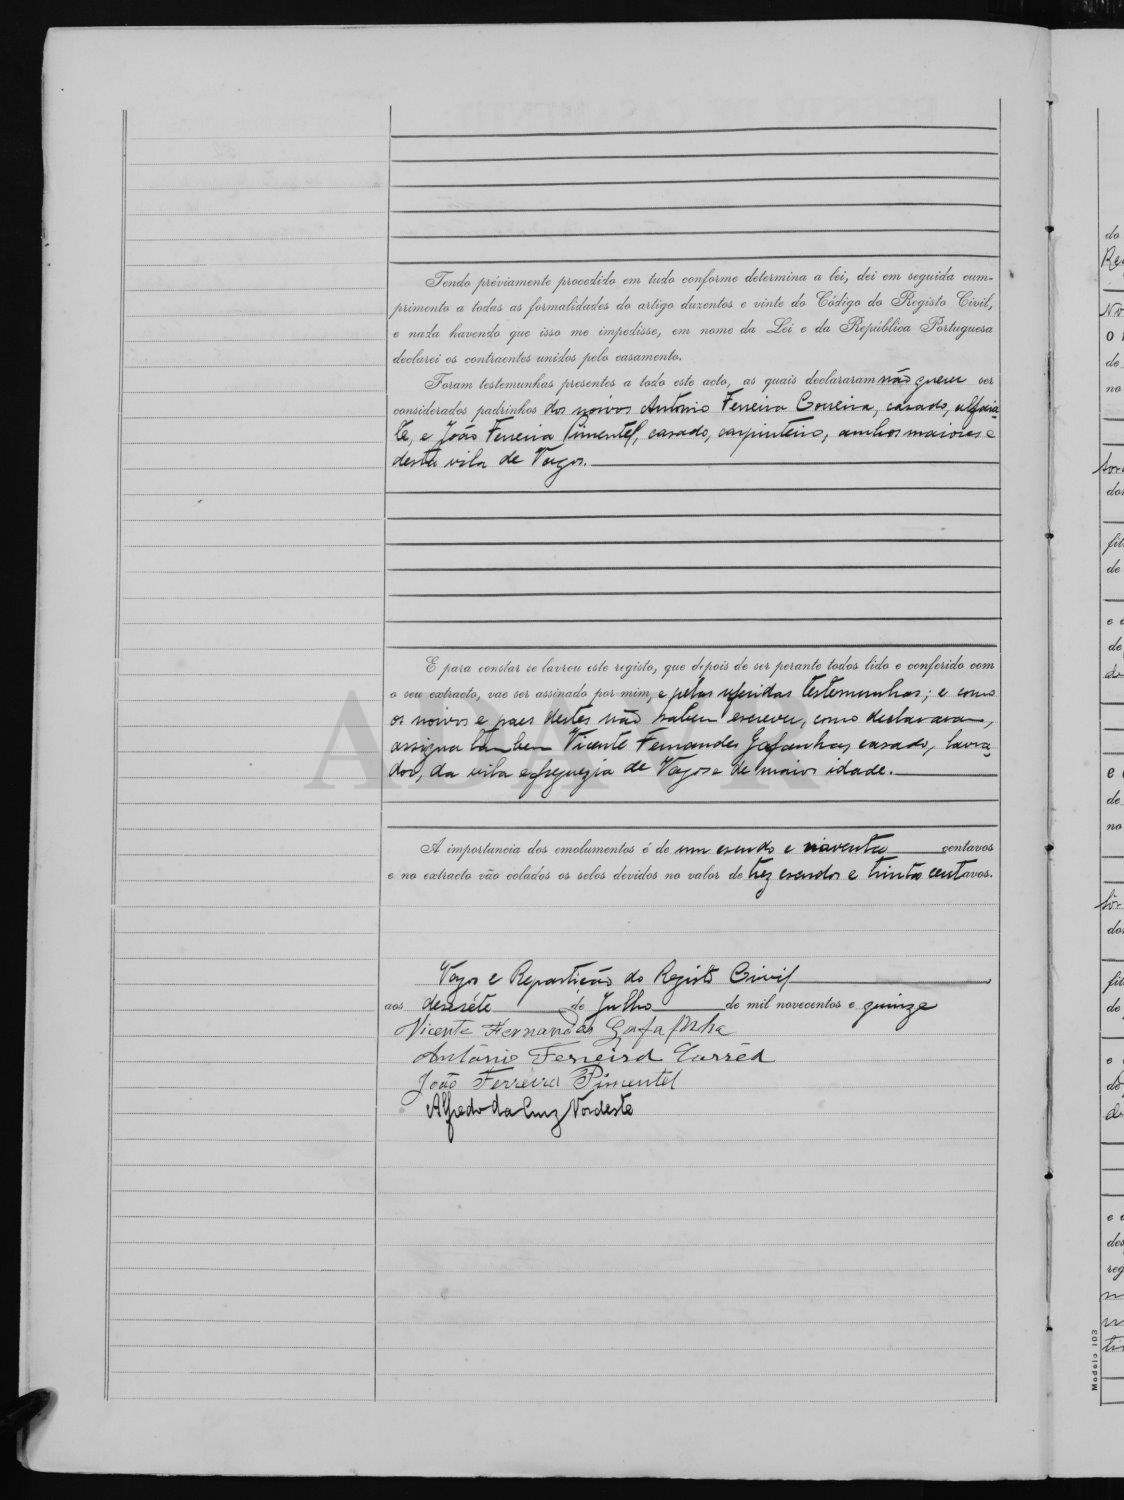 Tendo préviamente procedido em tudo conforme determina a lei, dei em seguida cum-
primento a todas as formalidades do artigo duzentos e vinte do Código do Registo Civil,
e nada havendo que isso me impedisse, em nome da Lei e da República Portuguesa
declarei os contraentes unidos pelo casamento.
Foram testemunhas presentes a todo este acto, as quais declararam não querer ser
considerados padrinhos dos noivos Antonio Ferreira Correira, casado, alfaia-
te, e João Ferreira Pimentel, casado, carpinteiro, ambos maiores e
desta vila de Vagos.
E para constar se lavrou este registo, que depois de ser perante todos lido e conferido com
o seu extracto, vae ser assinado por mim, e pelas referidas testemunhas; e como
os noivos e paes destes não sabem escrever, como declararam,
assigna tambem Vicente Fernandes Gafanha, casado, lavra-
dor, da vila e freguezia de Vagos e de maior idade.
A importancia dos emolumentos é de um escudo e noventa centavos
e no extracto vão colados os selos devidos no valor de trez escudos e trinta centavos.
Vagos e Repartição do Registo Civil
aos desesete de Julho de mil novecentos e quinze
Vicente Fernandes Gafanha
António Ferreira Corrêa
João Ferreira Pimentel
Alfredo da Cruz Nordeste
ADAVR
do
no
de
no
dos
de
e
de
do
e
de
no
dos
de
e
do
e
reg
Modelo 103